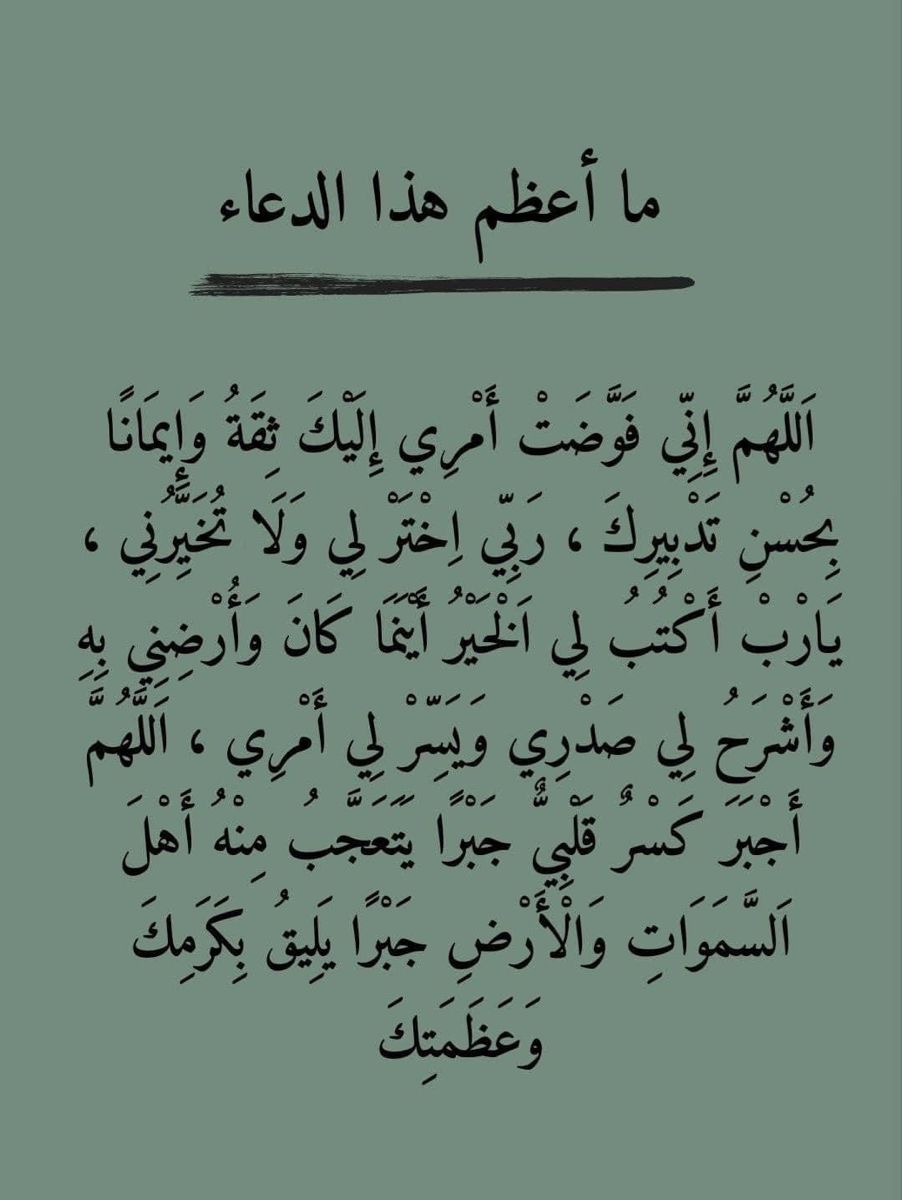 ما أعظم هذا الدعاء
اَللَّهُمَّ إِنِّي فَوَّضَتْ أَمْرِي إِلَيْكَ ثِقَةُ وَإِيمَانًا
بِحُسْنِ تَدْبِيرِكَ ، رَبِّي اِخْتَرْ لِي وَلَا تُخَيِّرُنِي ،
يَارْبْ أَكْتُبُ لِي اَلْخَيْرُ أَيْنَمَا كَانَ وَأُرْضِنِي بِهِ
وَأَشْرَحُ لِي صَدْرِي وَيَسِّرْ لِي أَمْرِي ، اَللَّهُمَّ
أَجْبَرَ كَسْرٌ قَلْبِيٌّ جَبْرًا يَتَعَجَّبُ مِنْهُ أَهْلَ
اَلسَّمَوَاتِ وَالْأَرْضِ جَبْرًا يَلِيقُ بِكَرَمِكَ
وَعَظَمَتِكَ